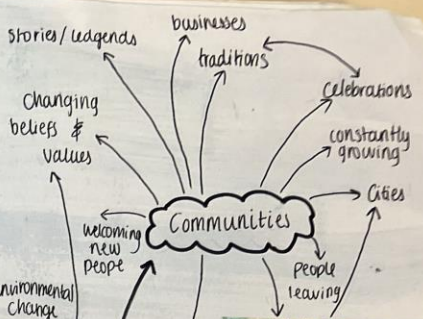 businesses
stories/ledgends
traditions
celebrations
Changing
beliefs &
values
constantly
growing
Cities
Communities
welcoming
new
peope
people
leaving
nvironmental
change